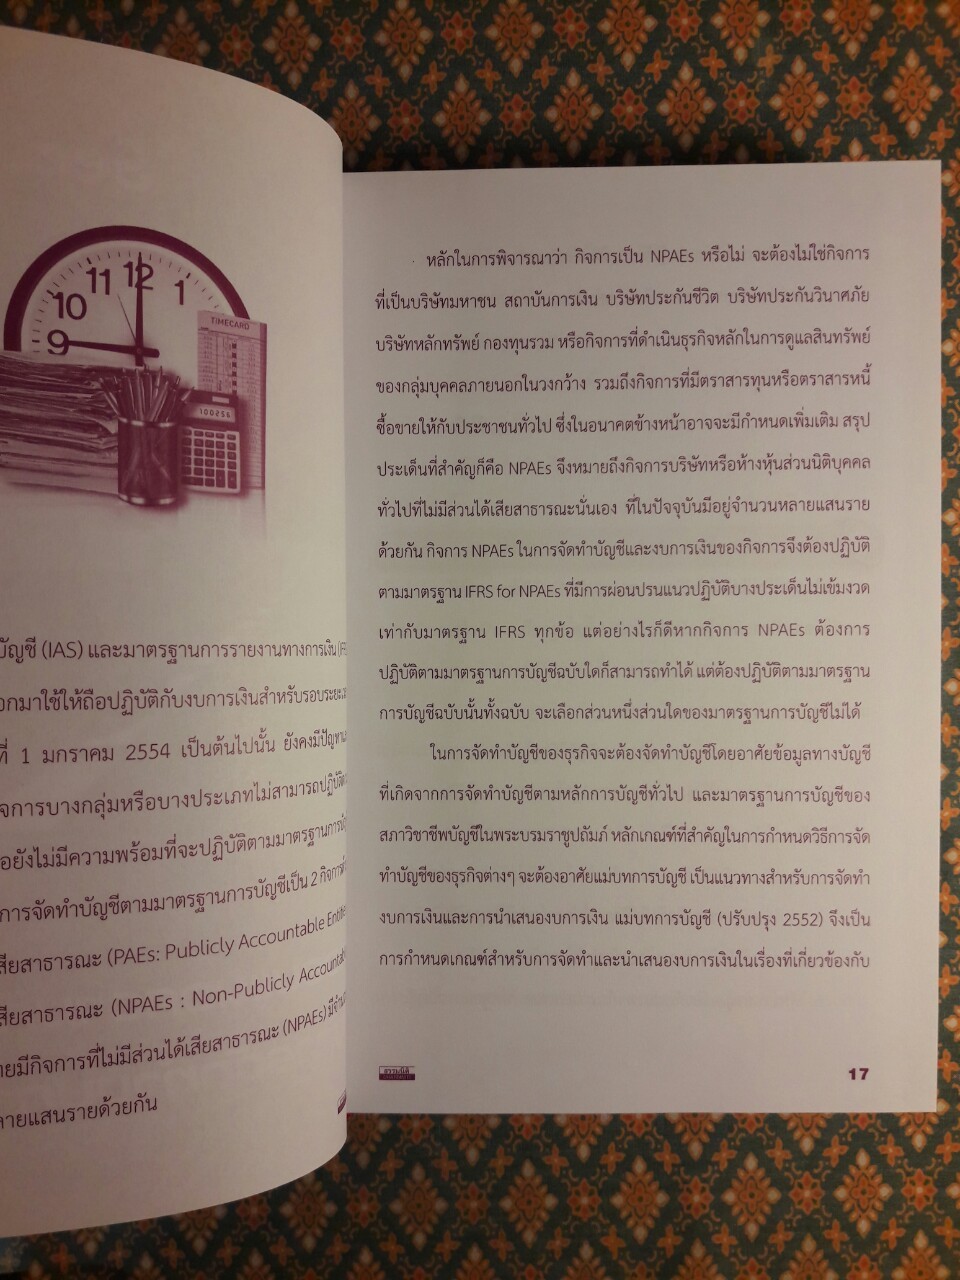 11
12
1
10
9
TIMECARD
บัญชี (IAS) และมาตรฐานการรายงานทางการเงิน
อกมาใช้ให้ถือปฏิบัติกับงบการเงินสำหรับรอบระยะเวลา
ที่ 1 มกราคม 2554 เป็นต้นไปนั้น ยังคงมีปัญหา
จการบางกลุ่มหรือบางประเภทไม่สามารถปฏิบัติ
อยังไม่มีความพร้อมที่จะปฏิบัติตามมาตรฐานการบัญ
การจัดทำบัญชีตามมาตรฐานการบัญชีเป็น 2 กิจการ
สียสาธารณะ (PAEs: Publicly Accountable Entitie
สียสาธารณะ (NPAEs : Non-Publicly Accountab
ายมีกิจการที่ไม่มีส่วนได้เสียสาธารณะ (NPAEs)
ลายแสนรายด้วยกัน
หลักในการพิจารณาว่า กิจการเป็น NPAEs หรือไม่ จะต้องไม่ใช่กิจการ
ที่เป็นบริษัทมหาชน สถาบันการเงิน บริษัทประกันชีวิต บริษัทประกันวินาศภัย
บริษัทหลักทรัพย์ กองทุนรวม หรือกิจการที่ดำเนินธุรกิจหลักในการดูแลสินทรัพย์
ของกลุ่มบุคคลภายนอกในวงกว้าง รวมถึงกิจการที่มีตราสารทุนหรือตราสารหนี้
ซื้อขายให้กับประชาชนทั่วไป ซึ่งในอนาคตข้างหน้าอาจจะมีกำหนดเพิ่มเติม สรุป
ประเด็นที่สำคัญก็คือ NPAEs จึงหมายถึงกิจการบริษัทหรือห้างหุ้นส่วนนิติบุคคล
ทั่วไปที่ไม่มีส่วนได้เสียสาธารณะนั่นเอง ที่ในปัจจุบันมีอยู่จำนวนหลายแสนราย
ด้วยกัน กิจการ NPAEs ในการจัดทำบัญชีและงบการเงินของกิจการจึงต้องปฏิบัติ
ตามมาตรฐาน IFRS for NPAEs ที่มีการผ่อนปรนแนวปฏิบัติบางประเด็นไม่เข้มงวด
เท่ากับมาตรฐาน IFRS ทุกข้อ แต่อย่างไรก็ดีหากกิจการ NPAEs ต้องการ
ปฏิบัติตามมาตรฐานการบัญชีฉบับใดก็สามารถทำได้ แต่ต้องปฏิบัติตามมาตรฐาน
การบัญชีฉบับนั้นทั้งฉบับ จะเลือกส่วนหนึ่งส่วนใดของมาตรฐานการบัญชีไม่ได้
ในการจัดทำบัญชีของธุรกิจจะต้องจัดทำบัญชีโดยอาศัยข้อมูลทางบัญชี
ที่เกิดจากการจัดทำบัญชีตามหลักการบัญชีทั่วไป และมาตรฐานการบัญชีของ
สภาวิชาชีพบัญชีในพระบรมราชูปถัมภ์ หลักเกณฑ์ที่สำคัญในการกำหนดวิธีการจัด
ทำบัญชีของธุรกิจต่างๆ จะต้องอาศัยแม่บทการบัญชี เป็นแนวทางสำหรับการจัดทำ
งบการเงินและการนำเสนองบการเงิน แม่บทการบัญชี (ปรับปรุง 2552) จึงเป็น
การกำหนดเกณฑ์สำหรับการจัดทำและนำเสนองบการเงินในเรื่องที่เกี่ยวข้องกับ
ธรรมนิติ
17